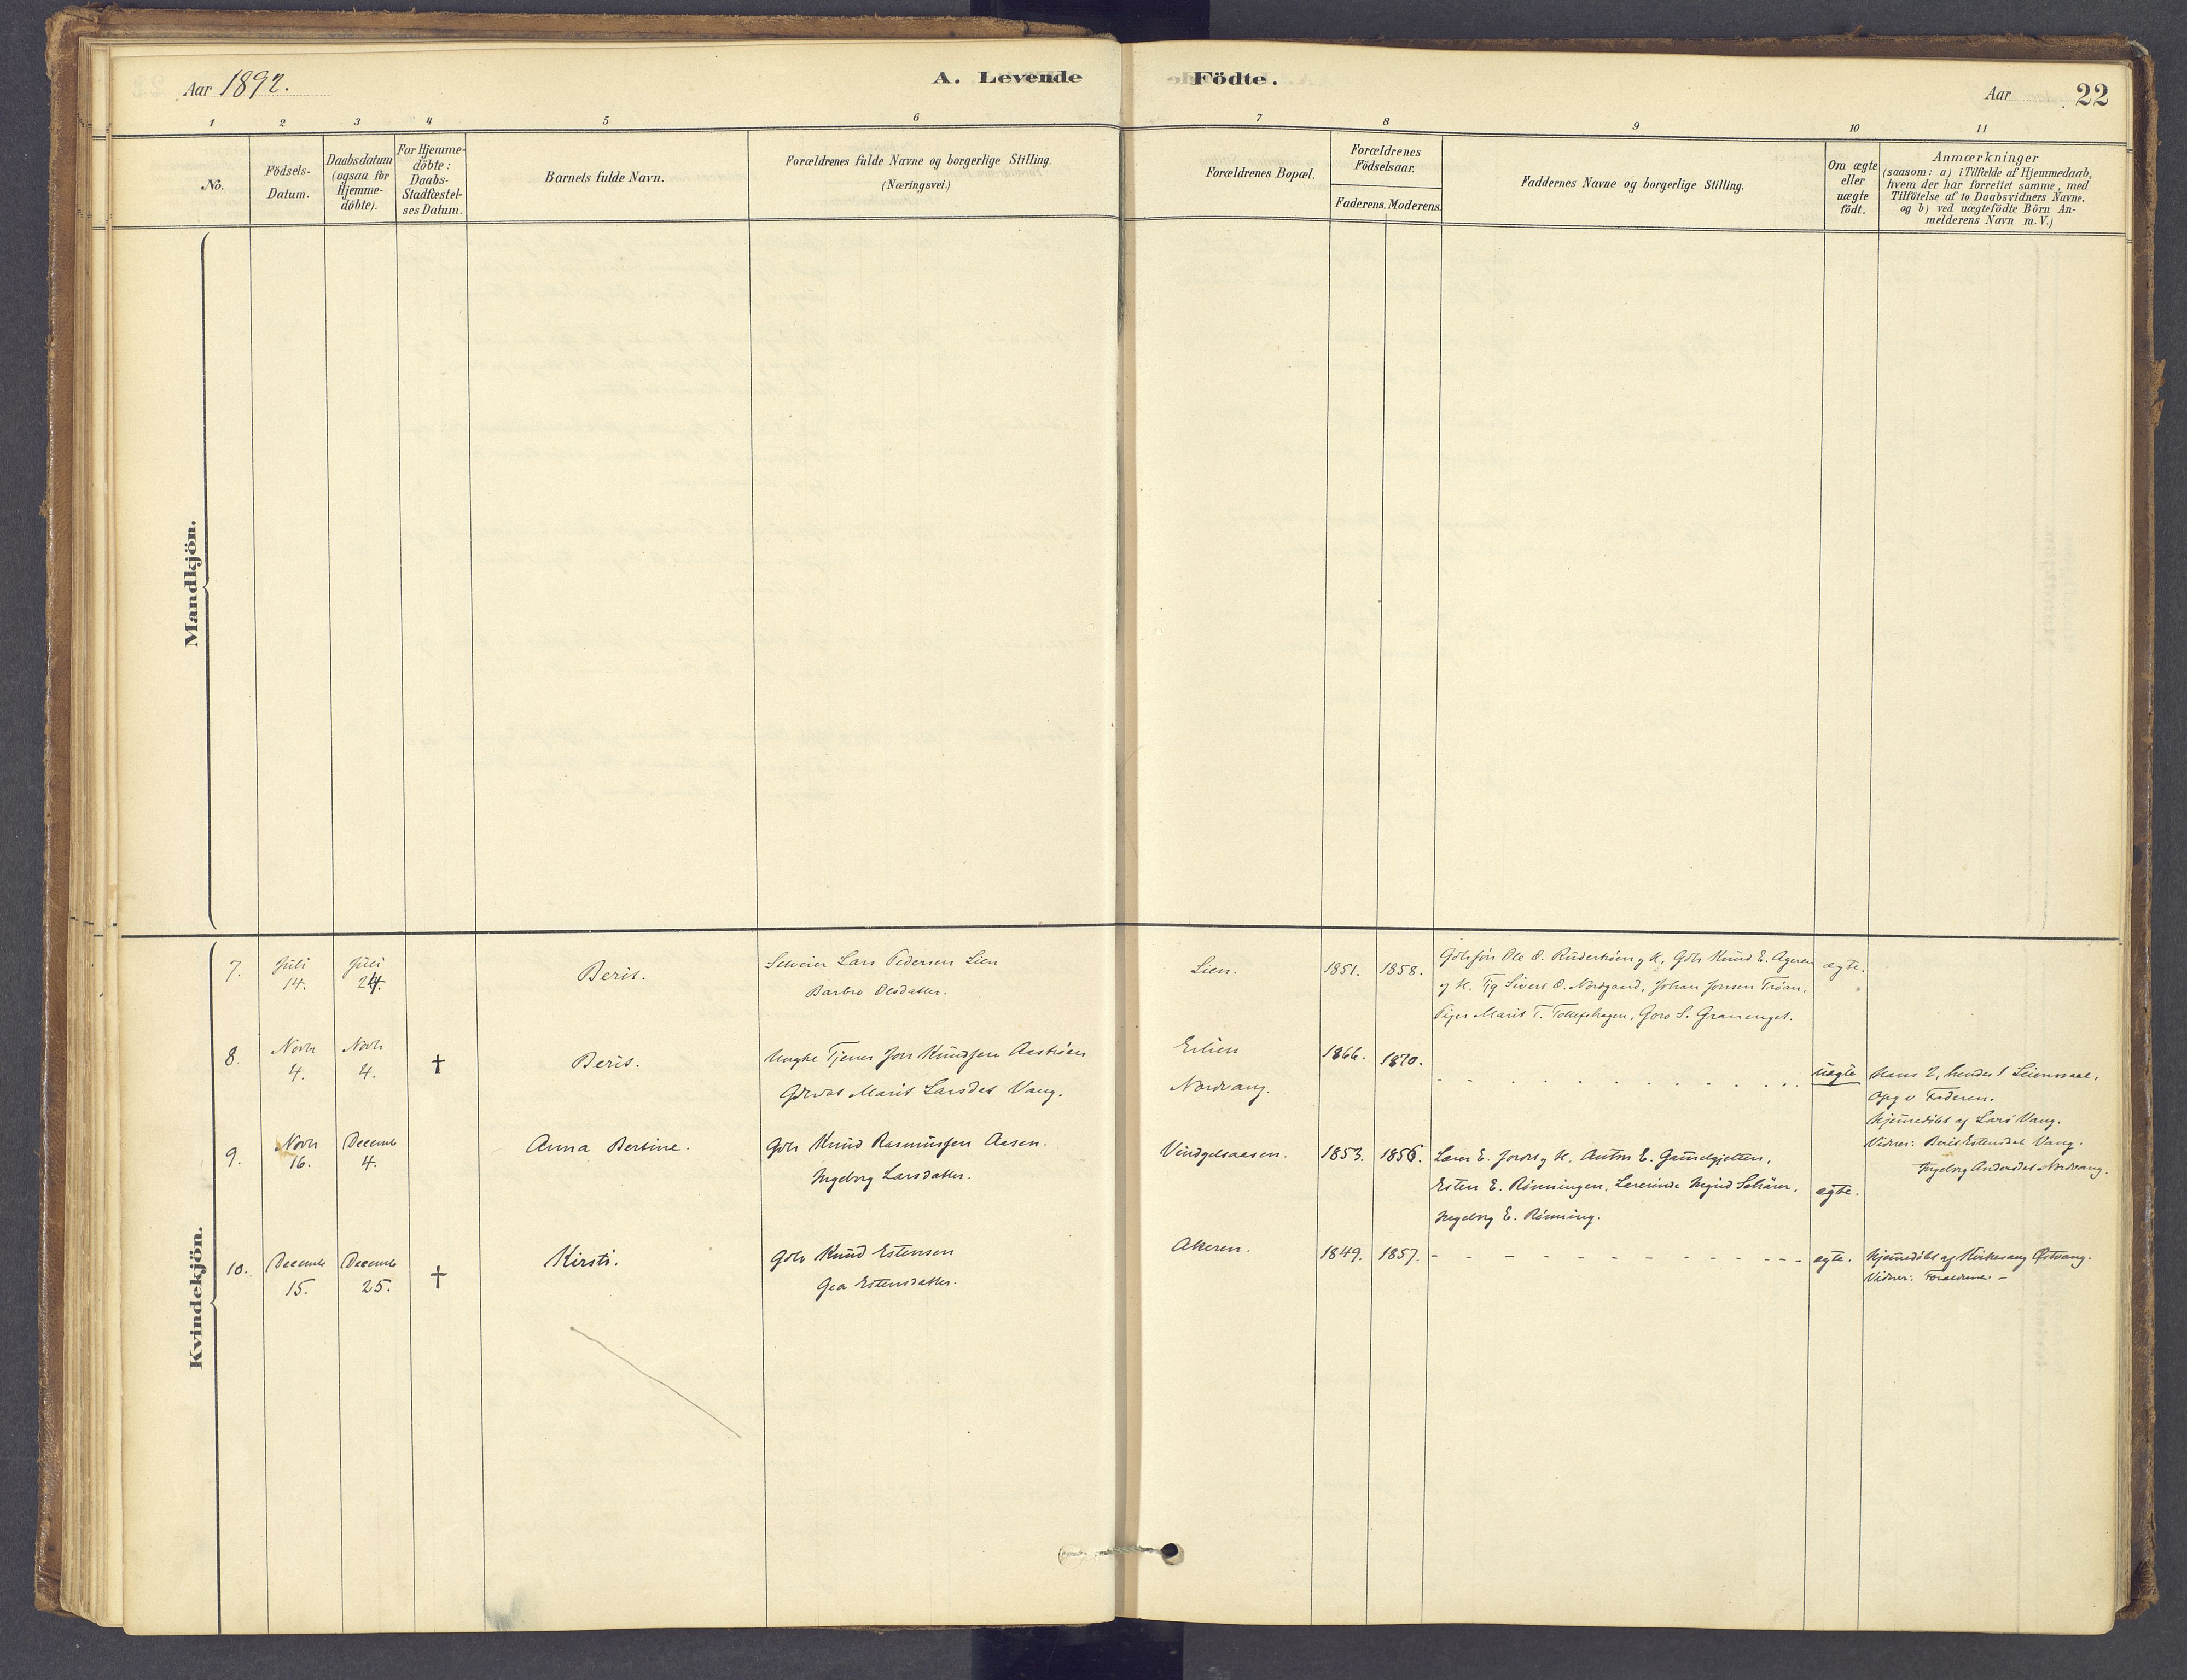 Aar 1892.
A. Levende Födte.
Aar 22
1 2 3 4 5 6 7 8 9 10 11
No.
Födsels-
Datum.
Daabsdatum
(ogsaa for
Hjemme-
döbte).
For Hjemme-
döbte:
Daabs-
Stadfæstel-
ses Datum.
Barnets fulde Navn.
Forældrenes fulde Navne og borgerlige Stilling.
(Næringsvei.)
Forældrenes Bopæl.
Forældrenes
Födselsaar.
Faderens. Moderens.
Faddernes Navne og borgerlige Stilling.
Om ægte
eller
uægte
födt.
Anmærkninger
(saasom: a) i Tilfælde af Hjemmedaab,
hvem der har forrettet samme, med
Tilföielse af to Daabsvidners Navne,
og b) ved uægtefödte Börn An-
melderens Navn m. V.)
Mandkjön.
Kvindekjön.
7.
Juli
14.
Juli
24.
Berit.
Selveier Lars Pedersen Lien
Barbro Olsdatter.
Lien.
1851. 1858.
Ole O. K, Gbr Knud E. Ageren
og K. Sivert O. Nordgaard, Johan Jonsen Tröan,
Piger Marit T. Goro S. Graneng
ægte.
8.
Novbr
4.
Novbr
4.
†
Berit.
Ungkr Tjener Jon Knudsen
Gdrdat Marit Larsdat Vang.
Nordvang.
1866. 1870.
uægte
Hans 2, hendes 1 Leiermaal,
Opg v Faderen.
Hjemmedöbt af Lars Vang.
Vidner: Berit Estensdat Vang.
Ingeborg Andersdat Nordvang.
9.
Novbr
16.
Decembr
4.
Anna Bertine.
Gbr Knud Rasmussen Aasen.
Ingeborg Larsdatter.
Vindgelsaasen.
1853. 1856.
Lærer E. Jordet og K. Anton E.
Esten E. Rönningen, Lærerinde Ingrid
Ingeborg E. Rönning.
ægte.
10.
Decembr
15.
Decembr
25.
†
Kirsti.
Gbr Knud Estensen
Gea Estensdatter.
Akeren.
1849. 1857.
ægte.
Hjemmedöbt af Kirkesang Østvang.
Vidner: Forældrene. –